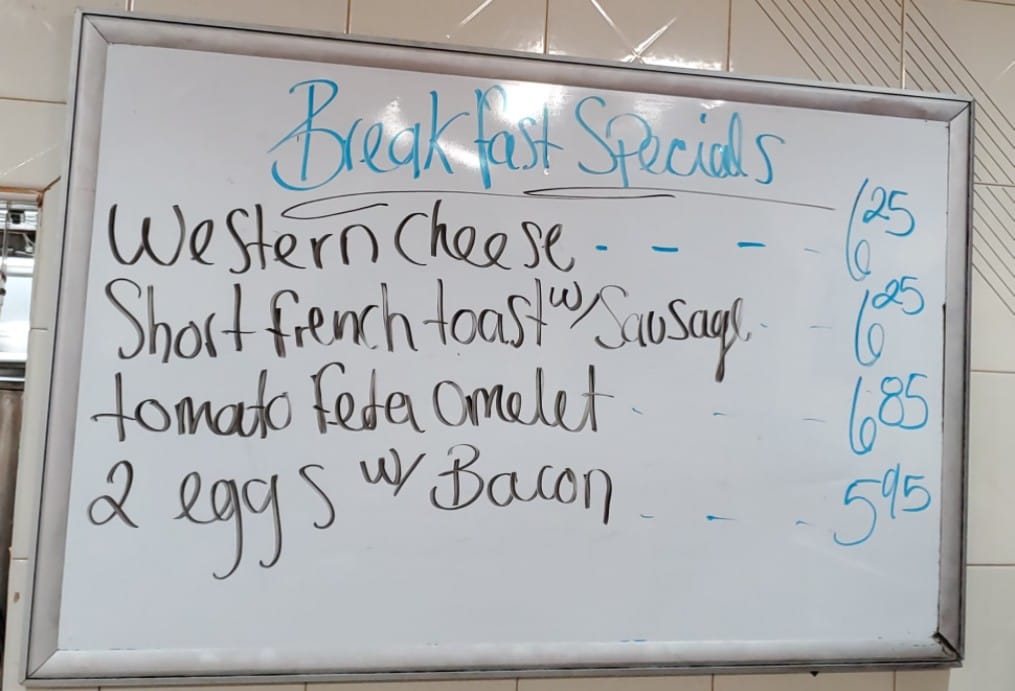 Breakfast Specials
Western Cheese - - - - 6 25
Short french toast w/ Sausage - - 6 25
tomato Feta Omelet - - - 6 85
2 eggs w/ Bacon - - - 5 95